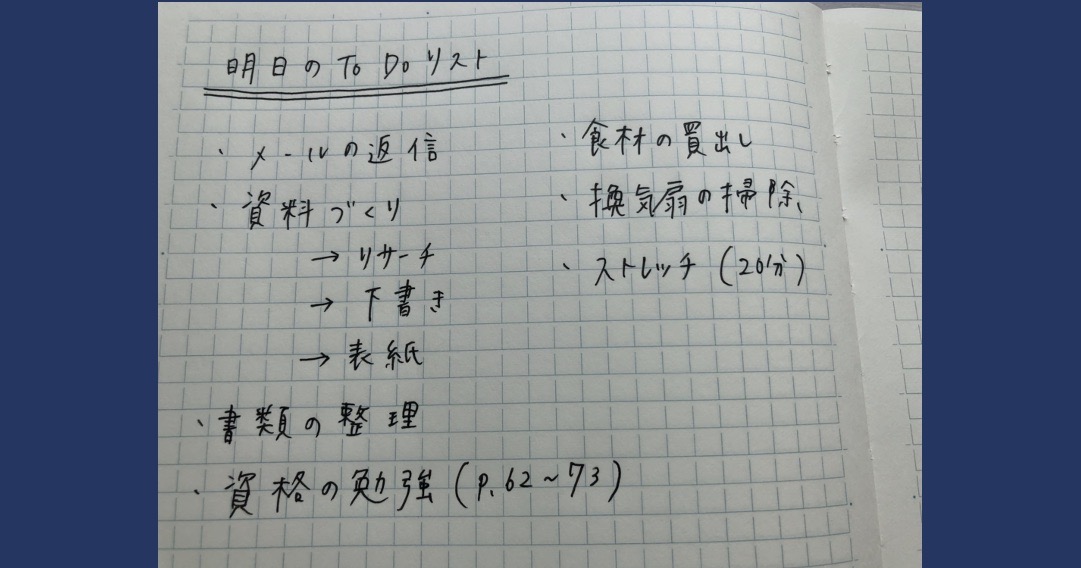 明日のTo Doリスト
・メールの返信
・資料づくり
→ リサーチ
→ 下書き
→ 表紙
・書類の整理
・資格の勉強(P.62~73)
・食材の買出し
・換気扇の掃除
・ストレッチ(20分)